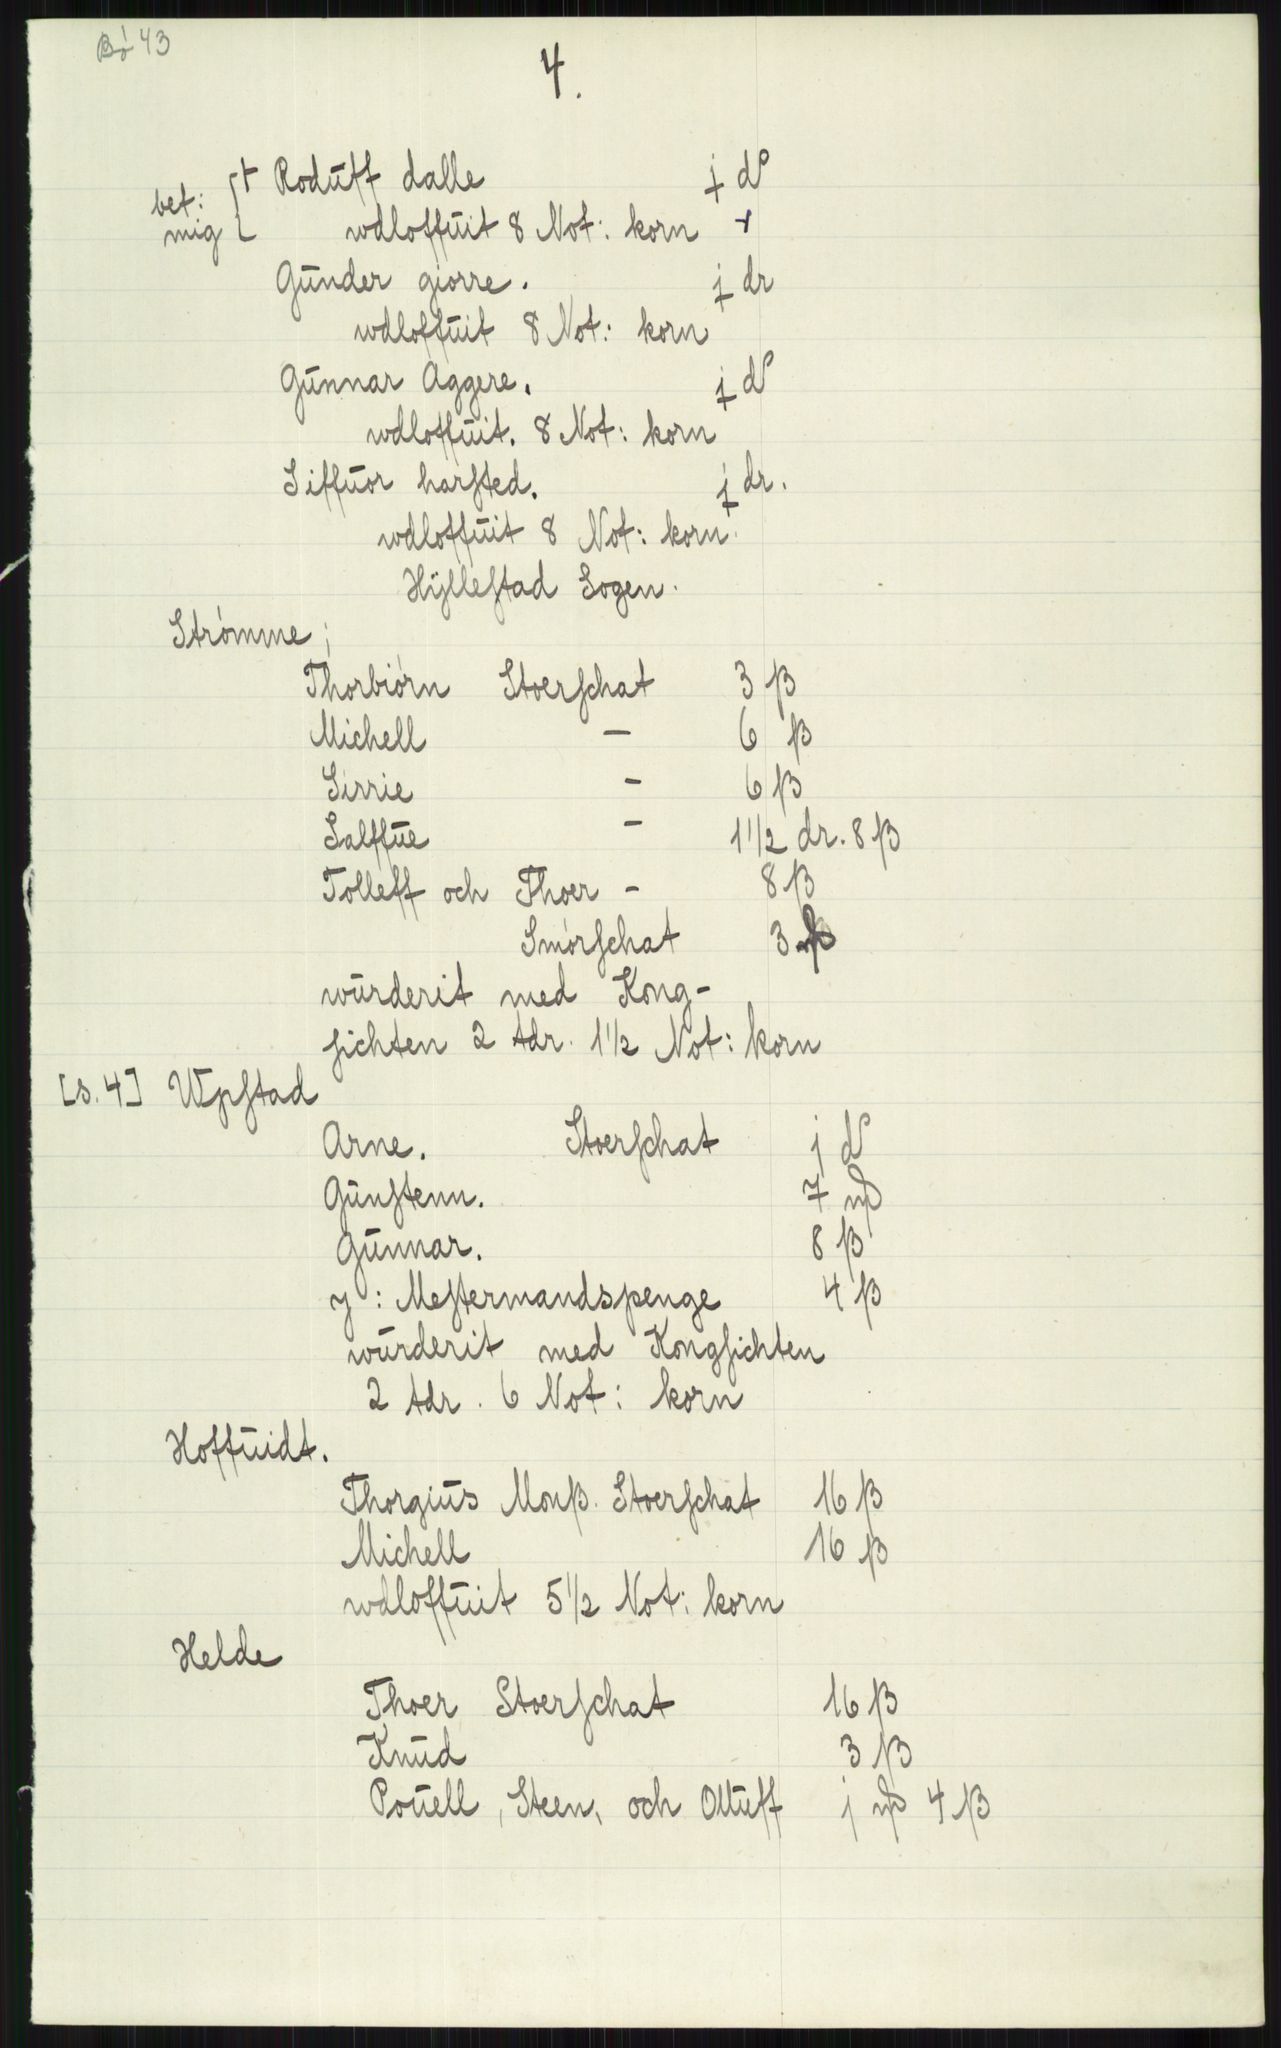 Bó 43
4.
bet: mig { † Roduff dalle j dr
wdloffuit 8 Not: korn
Gunder giorre. j dr
wdloffuit 8 Not: korn
Gunnar Aggere. j dr
wdloffuit. 8 Not: korn
Siffuor harsted. j dr.
wdloffuit 8 Not: korn.
Hÿllestad Sogen.
Strómme;
Thorbiórn Stoerschat 3 ß
Michell – 6 ß
Sirrie – 6 ß
Salffue – 1 1/2 dr. 8 ß
Tolleff och Thoer – 8 ß
Smórschat 3
wurderit med Kong-
sichten 2 tdr. 1 1/2 Not: korn
[s. 4] Wpstad
Arne. Stoerschat j dr
Gunstenn. 7 mk
Gunnar. 8 ß
y: Mestermandspenge 4 ß
wurderit med Kongsichten
2 tdr. 6 Not: korn
Hoffuidt.
Thorgius Monß. Stoerschat 16 ß
Michell 16 ß
wdloffuit 5 1/2 Not: korn
Helde
Thoer Stoerschat 16 ß
Knud 3 ß
Pouell, Steen, och Olluff j mk 4 ß